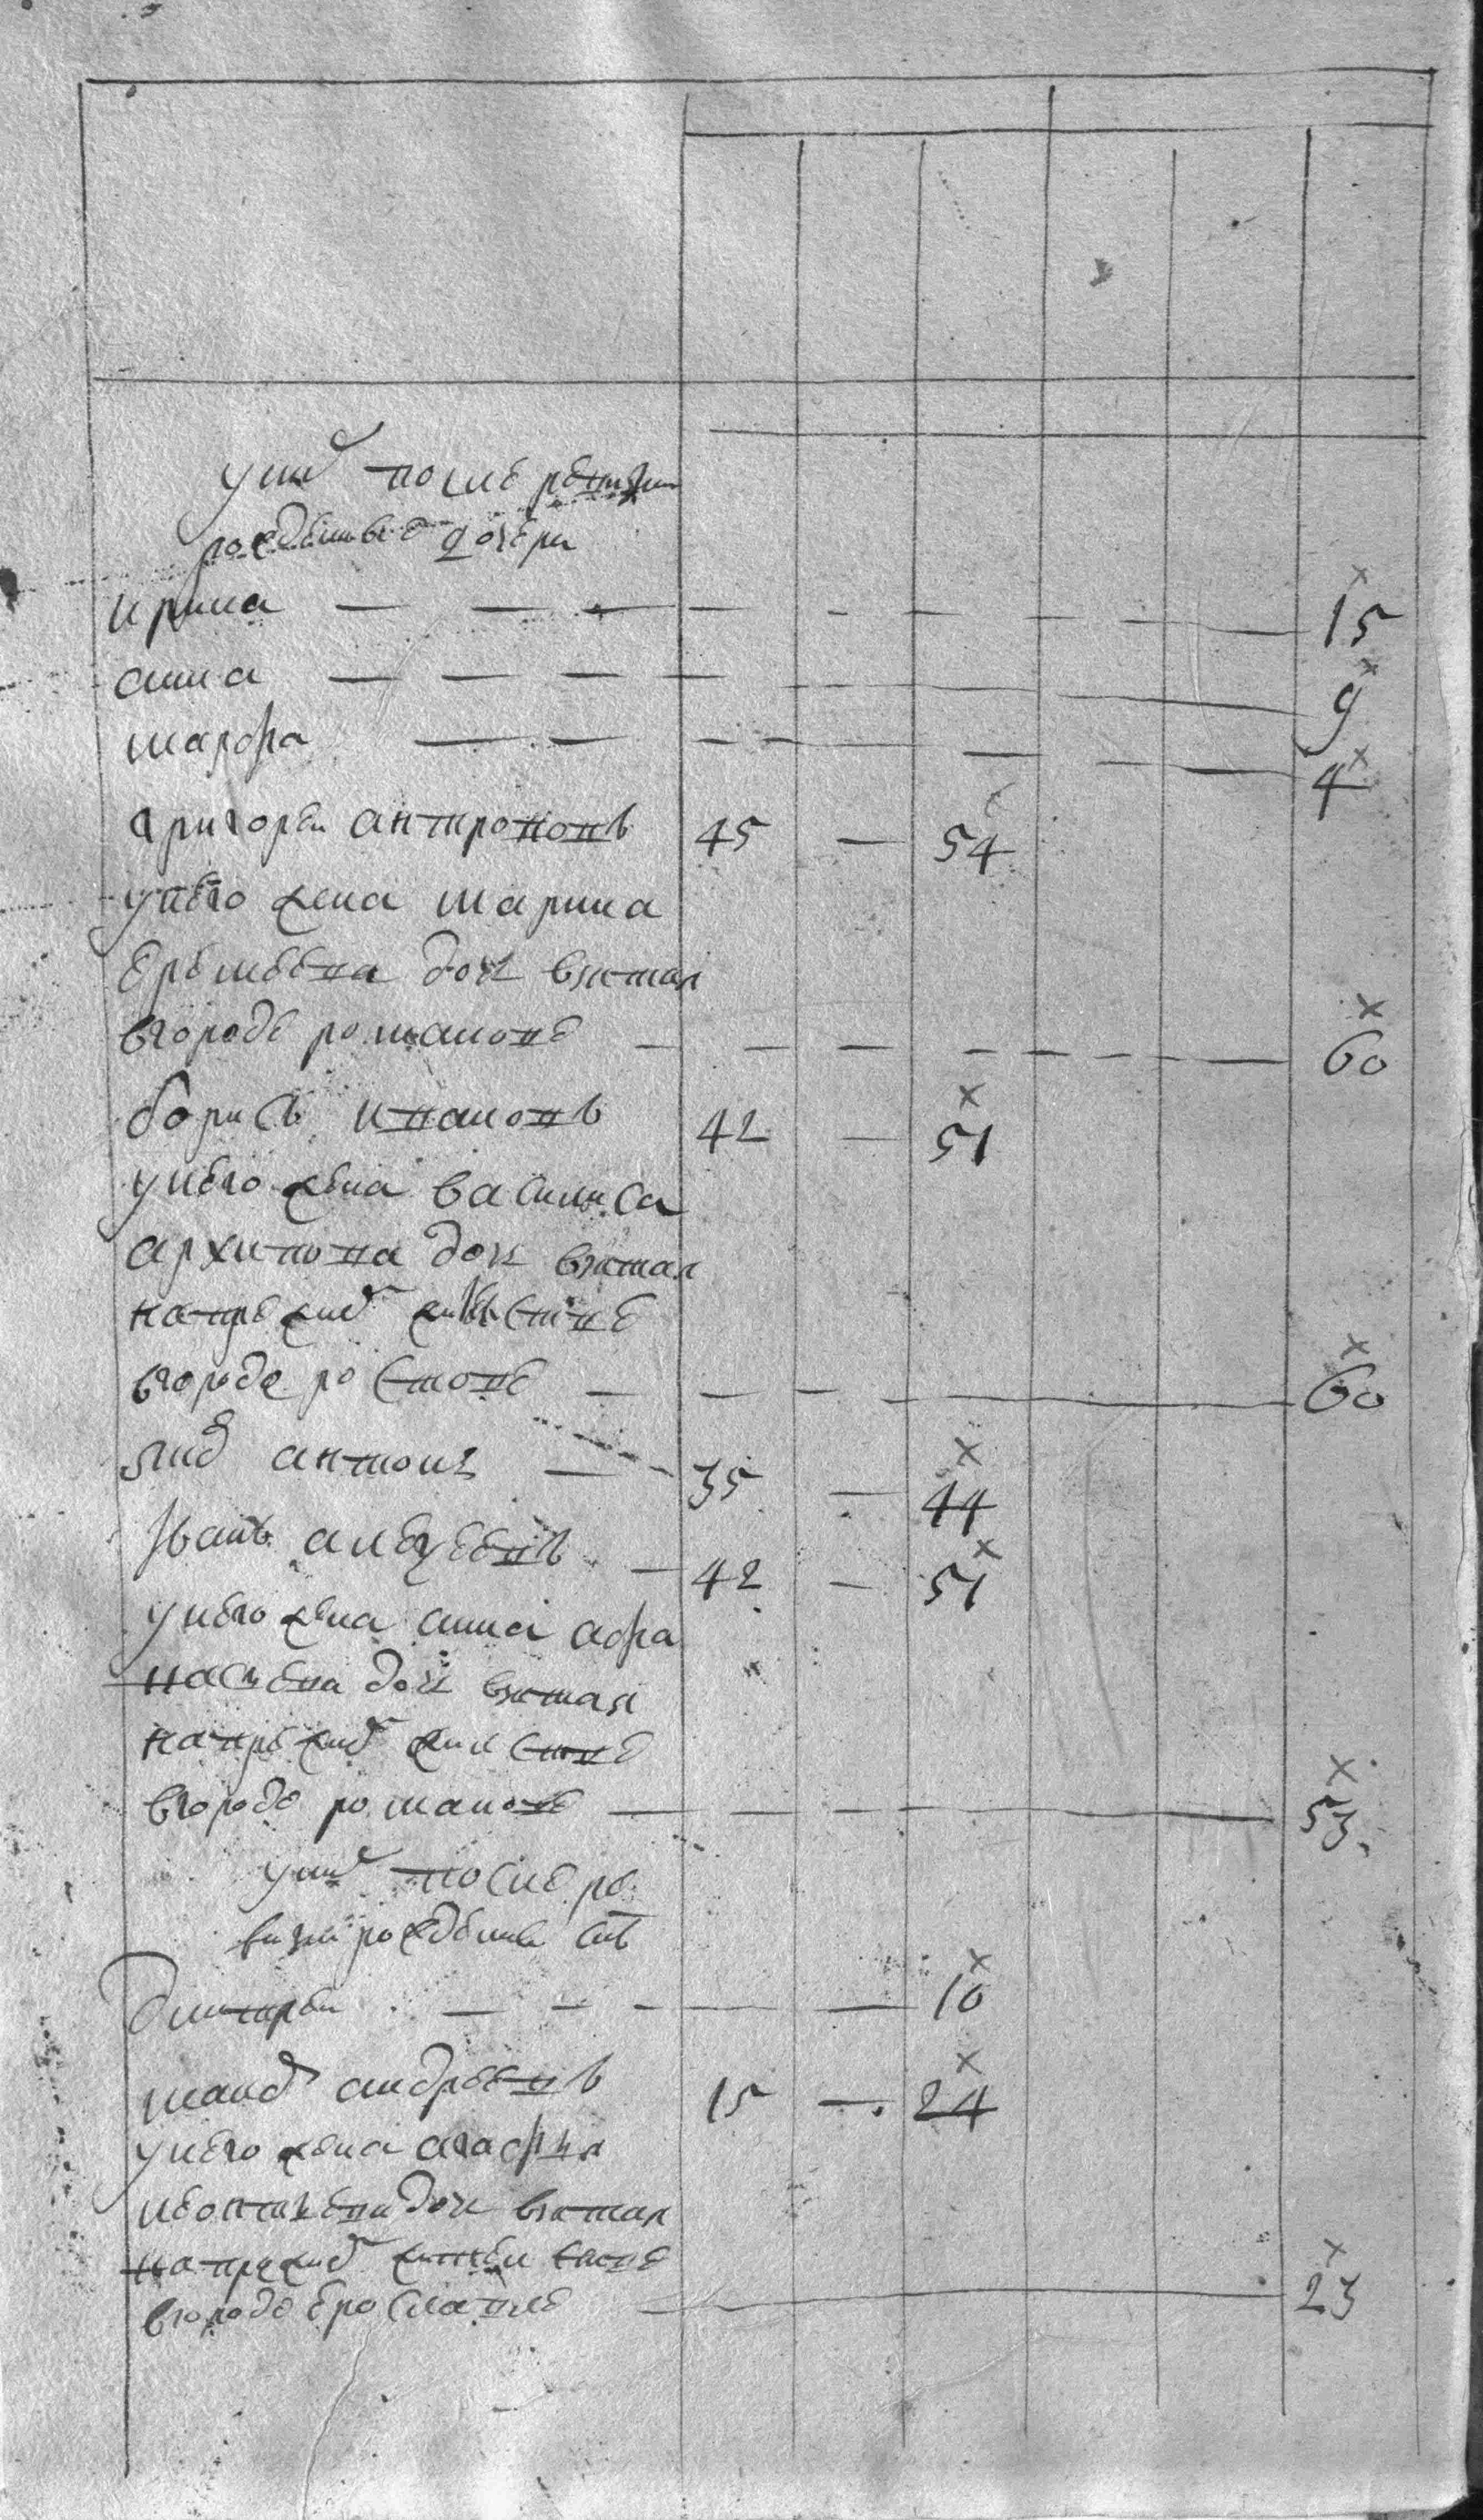 у них после ревизи
рожденные дочери
ирина — — — — — — — — — 15
анна — — — — — — — 9
марфа — — — — — — — 4
григореи антроповъ 45 — 54
унего жена марина
еремеева дочь взятая
вгороде романове — — — — — — — 60
борисъ ивановъ 42 — 51
унего жена василиса
архипова дочь взятая
напрежнем жительстве
вгороде ростове — — — — 60
антонъ — 35 — 44
Иванъ алеѯеевъ — 42 — 51
унего жена анна афа
насьева дочь взятая
напрежнем жительстве
вгороде романове — — — — 53
у них после ре
визии рожденны снъ
Дмитреи — — — — — 10
андреевъ 15 — 24
унего жена агафья
леонтьева дочь взятая
напрежнем
вгороде ерославле — — 23